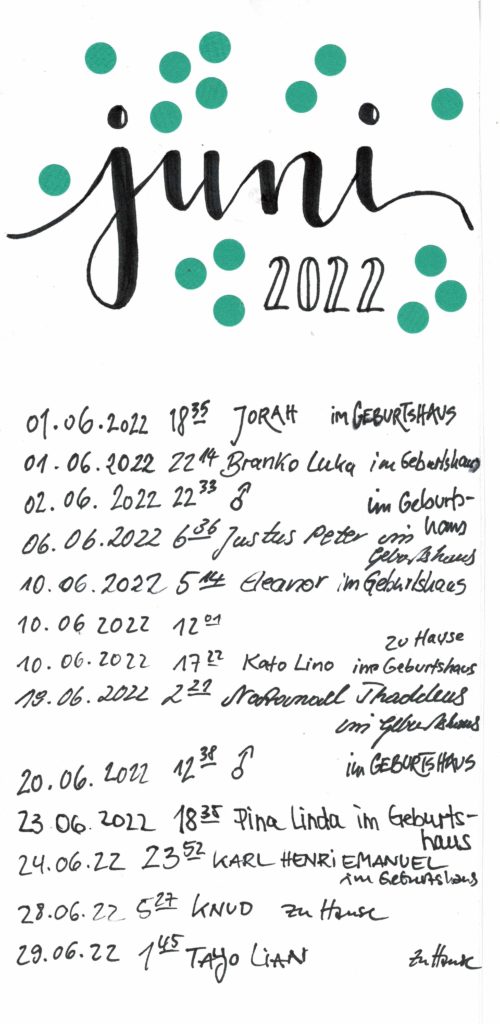 juni
2022
01.06.2022 18 35 JORAH im GEBURTSHAUS
01.06.2022 22 14 Branko Luka im Geburtshaus
02.06.2022 22 33 ♂ im Geburts-
haus
06.06.2022 6 36 Justus Peter im
Geburtshaus
10.06.2022 5 14 Eleanor im Geburtshaus
10.06 2022 12 01
zu Hause
10.06.2022 17 22 Kato Lino im Geburtshaus
19.06.2022 2 21 Thaddeus
im Geburtshaus
20.06.2022 12 38 ♂ im GEBURTSHAUS
23.06.2022 18 35 Pina Linda im Geburts-
haus
24.06.22 23 52 KARL HENRI EMANUEL
im Geburtshaus
28.06.22 5 27 KNUD zu Hause
29.06.22 1 45 TAYO LIAN zu Hause